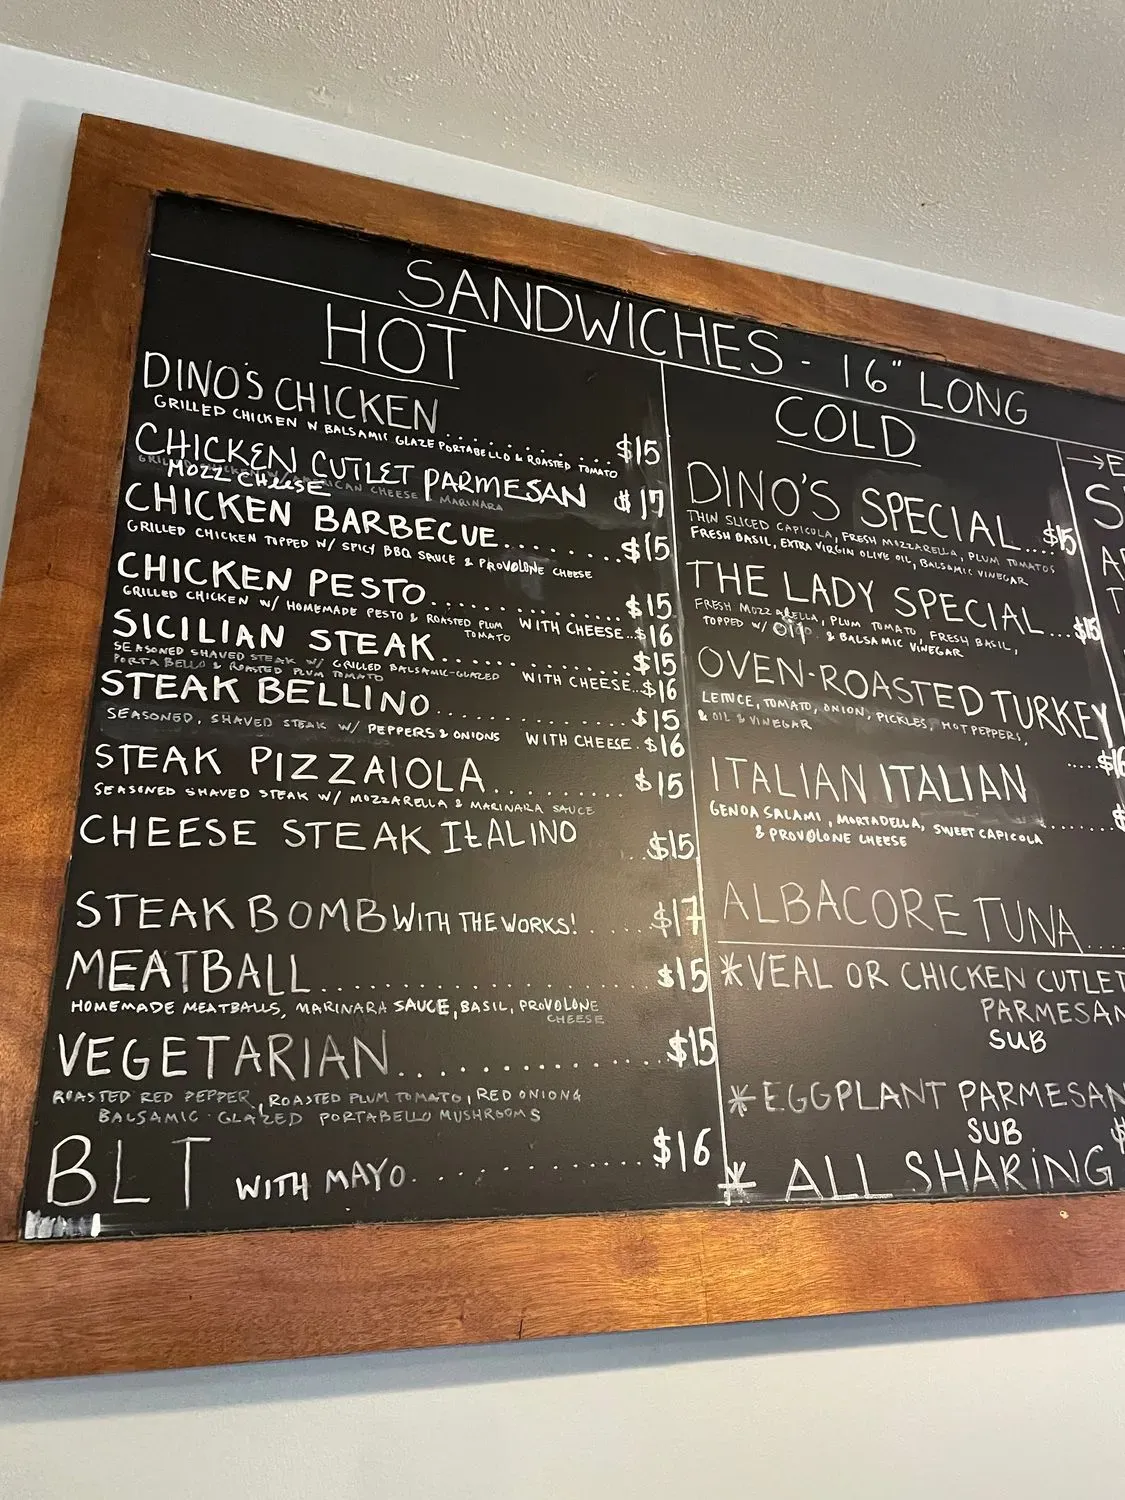 SANDWICHES - 16" LONG
HOT
DINO'S CHICKEN.......... $15
GRILLED CHICKEN W BALSAMIC GLAZE PORTABELLO & ROASTED TOMATO
CHICKEN CUTLET PARMESAN $17
MOZZ CHEESE
CHICKEN BARBECUE........ $15
GRILLED CHICKEN TOPPED W/ SPICY BBQ SAUCE & PROVOLONE CHEESE
CHICKEN PESTO............... $15
GRILLED CHICKEN W/ HOMEMADE PESTO & ROASTED PLUM TOMATO WITH CHEESE...$16
SICILIAN STEAK.............. $15
SEASONED SHAVED STEAK W/ GRILLED BALSAMIC-GLAZED
PORTABELLO & ROASTED PLUM TOMATO WITH CHEESE...$16
STEAK BELLINO.............. $15
SEASONED, SHAVED STEAK W/ PEPPERS & ONIONS WITH CHEESE. $16
STEAK PIZZAIOLA......... $15
SEASONED SHAVED STEAK W/ MOZZARELLA & MARINARA SAUCE
CHEESE STEAK ITALINO ..$15
STEAK BOMB WITH THE WORKS!.....$17
MEATBALL....................$15
HOMEMADE MEATBALLS, MARINARA SAUCE, BASIL, PROVOLONE
CHEESE
VEGETARIAN...............$15
ROASTED RED PEPPER, ROASTED PLUM TOMATO, RED ONION &
BALSAMIC-GLAZED PORTABELLO MUSHROOMS
BLT WITH MAYO...............$16
COLD
DINO'S SPECIAL....$15
THIN SLICED CAPICOLA, FRESH MOZZARELLA, PLUM TOMATOS
FRESH BASIL, EXTRA VIRGIN OLIVE OIL, BALSAMIC VINEGAR
THE LADY SPECIAL...$15
FRESH MOZZARELLA, PLUM TOMATO, FRESH BASIL,
TOPPED W/ OIL & BALSAMIC VINEGAR
OVEN-ROASTED TURKEY
LETTUCE, TOMATO, ONION, PICKLES, HOT PEPPERS,
& OIL & VINEGAR
.....$16
ITALIAN ITALIAN
GENOA SALAMI, MORTADELLA, SWEET CAPICOLA
& PROVOLONE CHEESE
ALBACORE TUNA....
*VEAL OR CHICKEN CUTLET
PARMESAN
SUB
*EGGPLANT PARMESAN
SUB
* ALL SHARING